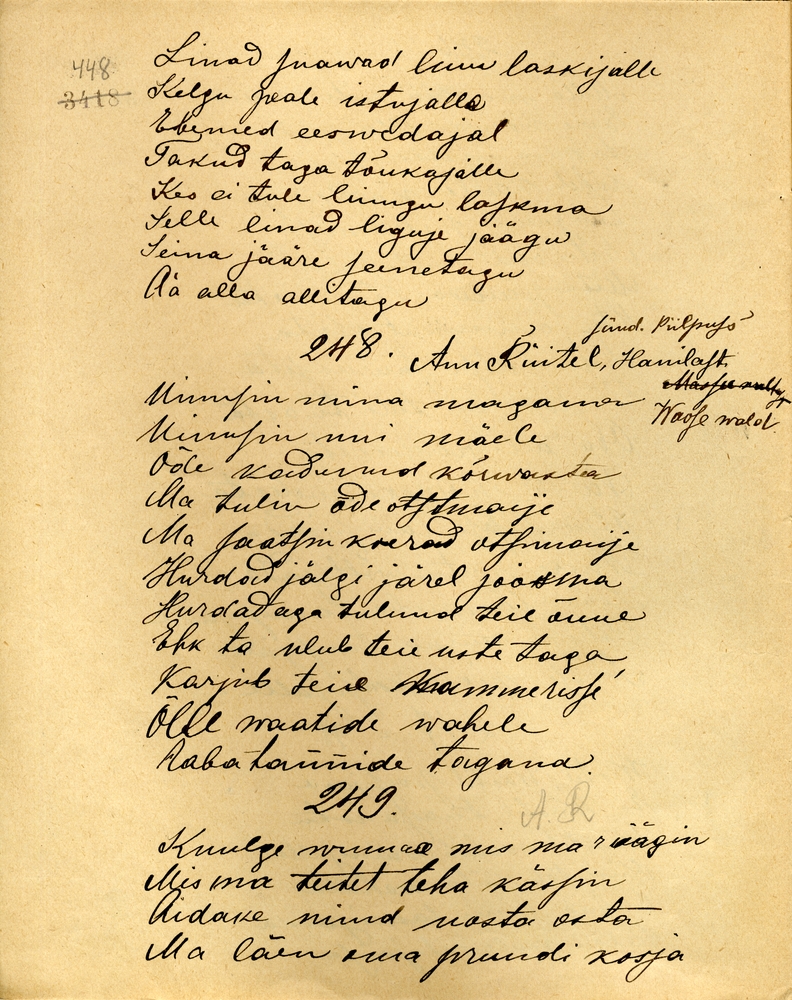 448
3418
Linad suawad liuu laskijalle
Kelgu peale istujalle
Ebemed eeswedajal
Takud taga tõukajalle
Kes ei tule liuugu laskma
Selle linad liguje jäägu
Seina jääre seenetagu
Ää alla allitagu
sünd. Piilpuss
248. Ann Rüitel, Hanilast
Massu wallast
Waose wald.
Uinusin mina magama
Uinusin uni mäele
Õde kadunud kõrwasta
Ma tulin õde otstmaije
Ma saatsin koerad otsimaije
Hurdad jälgi järel jooksma
Hurdadaga tulnud teie õuue
Ehk ta ulub teie uste taga
Karjub teie kammerisse
Õlle waatide wahele
Raba tannide tagana.
249.
A. R
Kuulge mis ma räägin
Mis ma teitet teha kässin
Aidake nuud uosta osta
Ma läen oma pruudi kosja